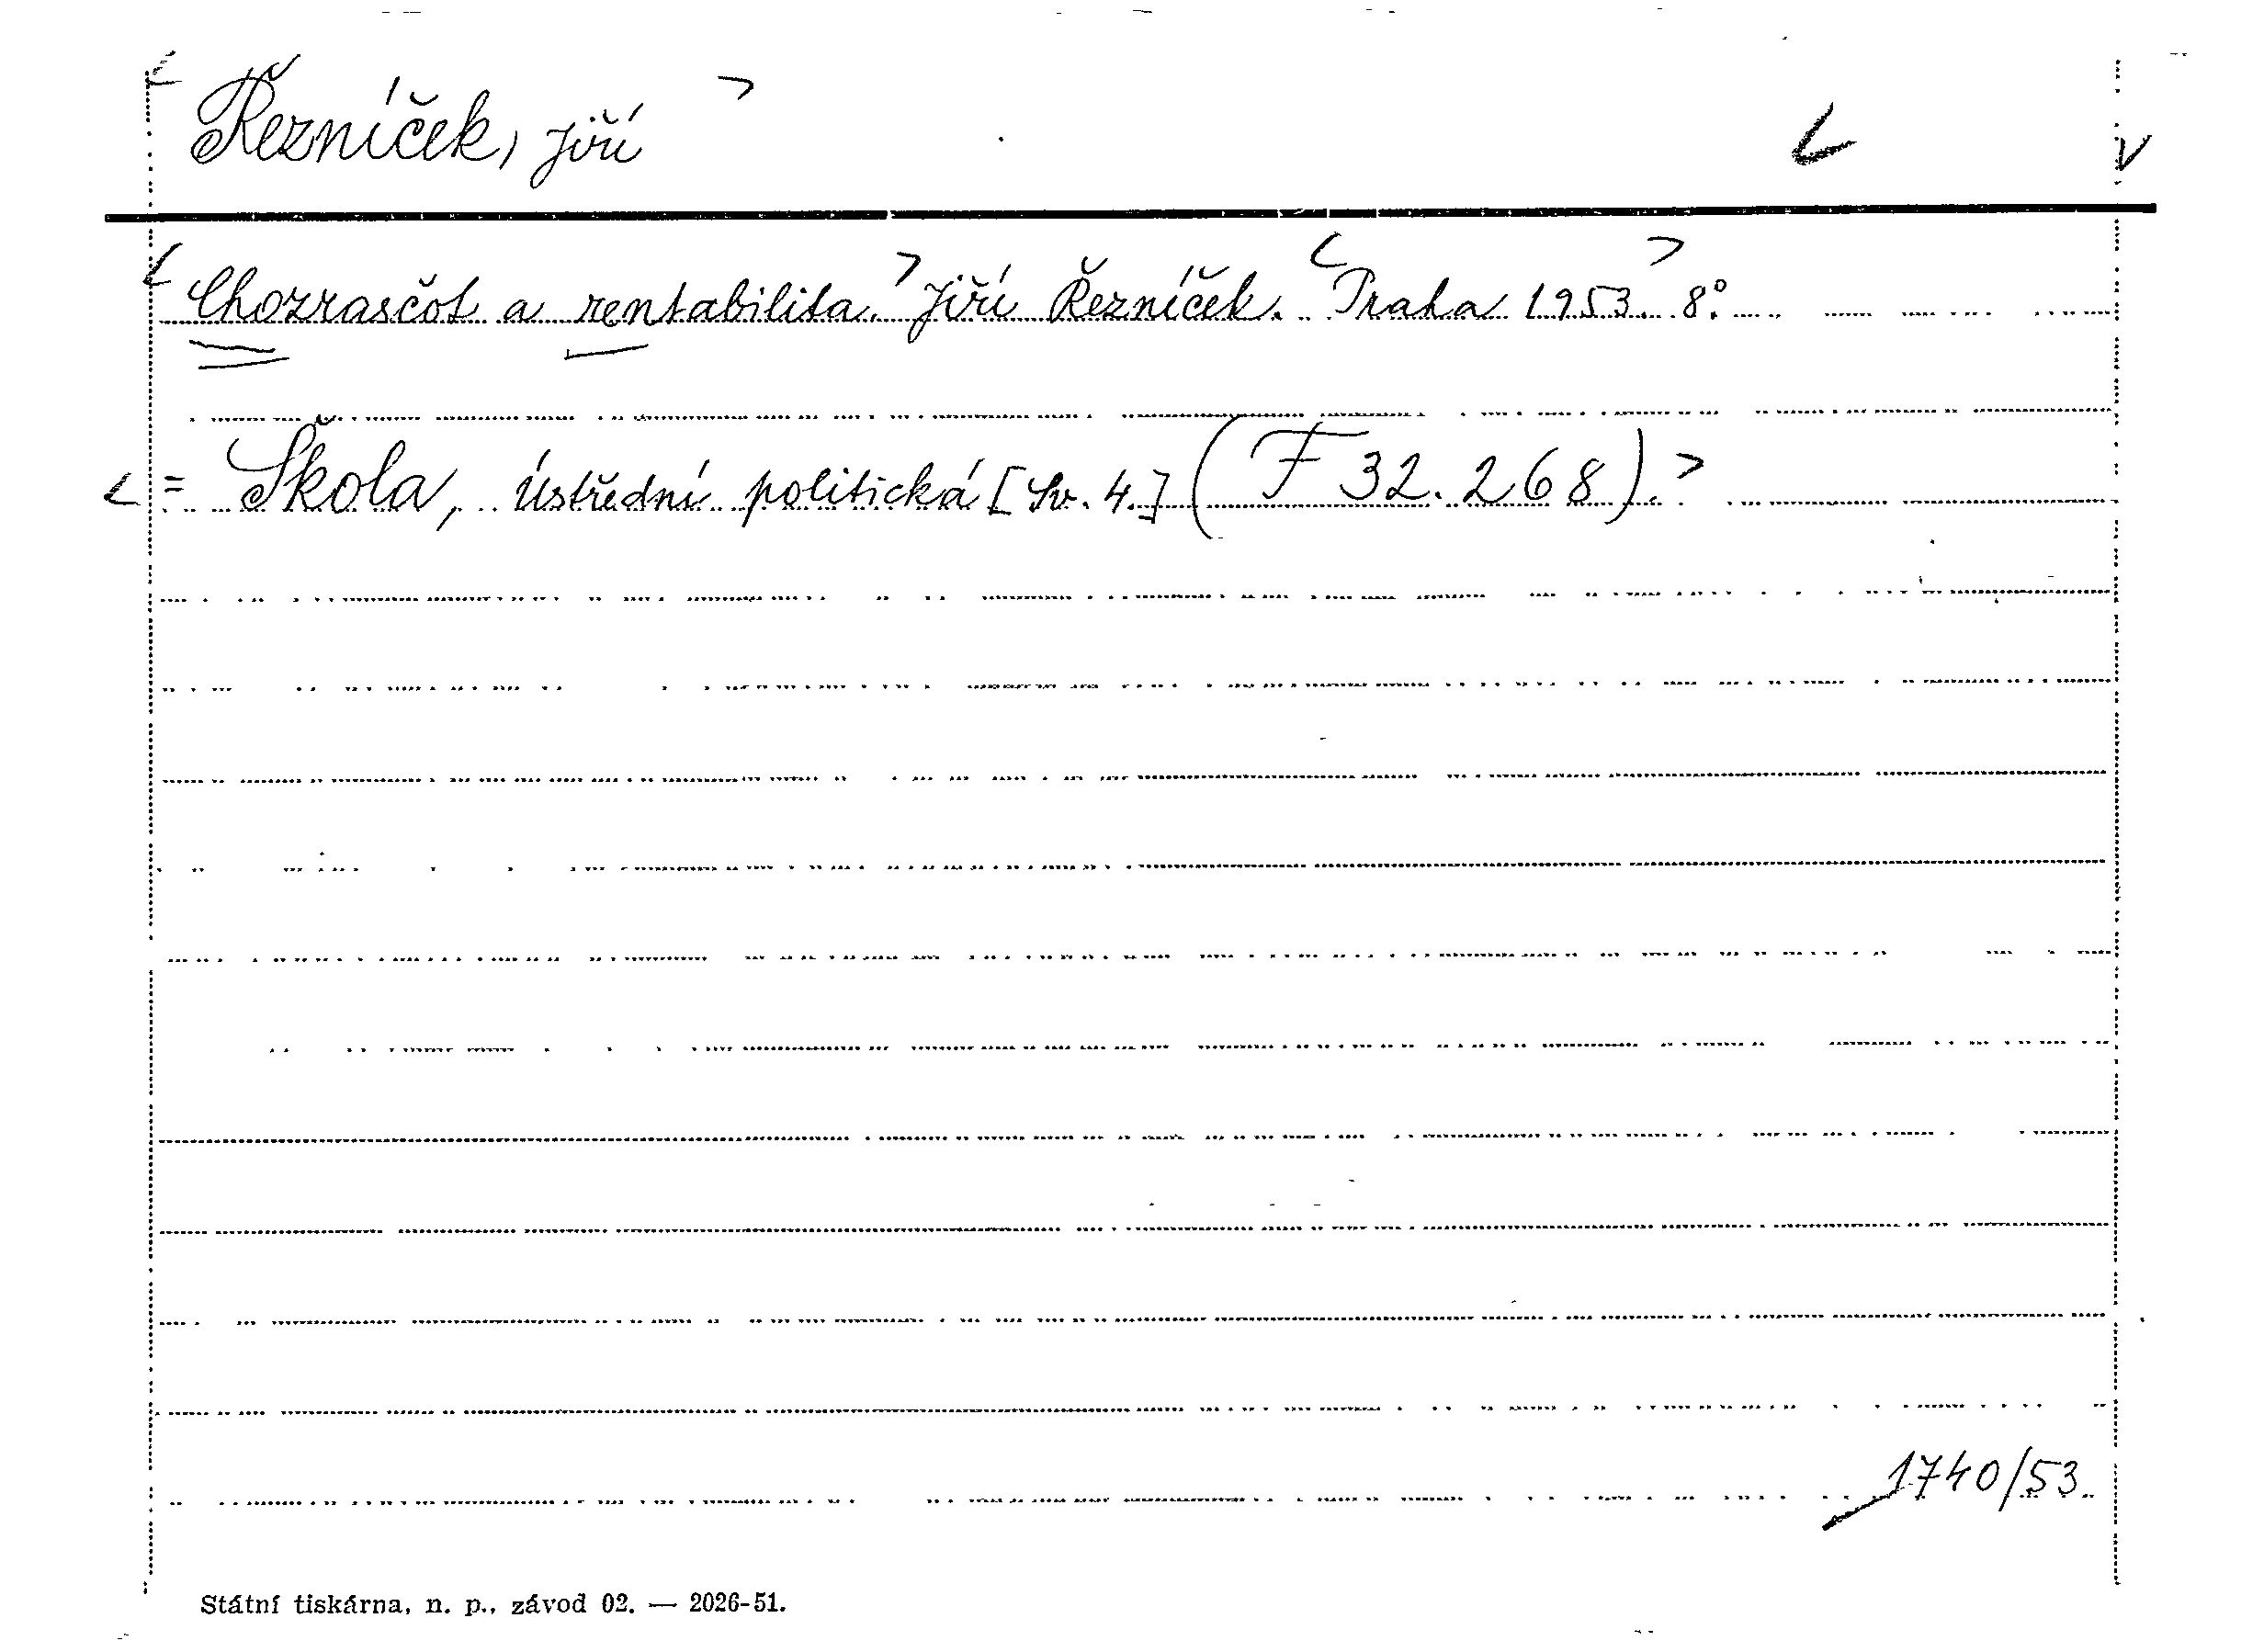 Řezníček, Jiří
Chozrasčot a rentabilita. Jiří Řezníček. Praha 1953. 8°.
= Škola, Ústřední politická [Sv. 4.] (F 32.268).
1740/53.
Státní tiskárna, n. p., závod 02. — 2026-51.